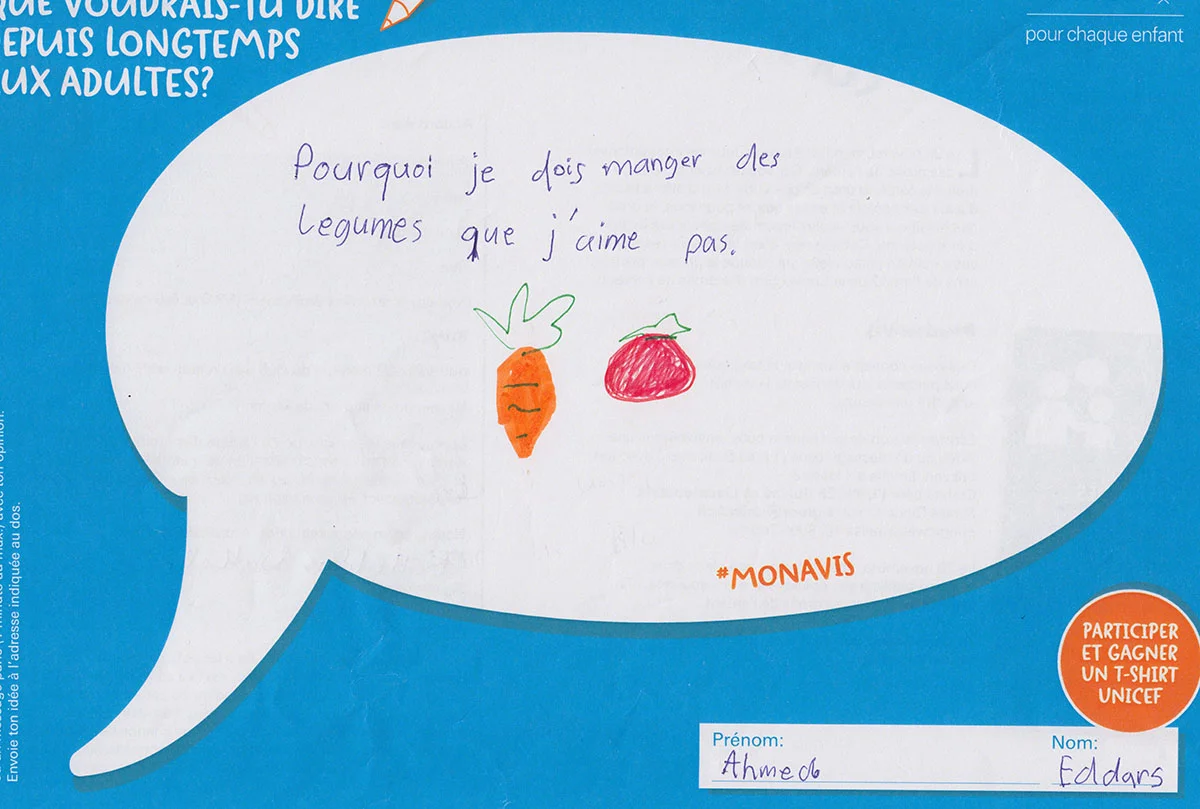 QUE VOUDRAIS-TU DIRE
DEPUIS LONGTEMPS
AUX ADULTES?
pour chaque enfant
Pourquoi je dois manger des
Legumes que j'aime pas.
#MONAVIS
PARTICIPER
ET GAGNER
UN T-SHIRT
UNICEF
Prénom:
Ahmed
Nom:
Eddars
avec ton opinion.
Envoie ton idée à l'adresse indiquée au dos.